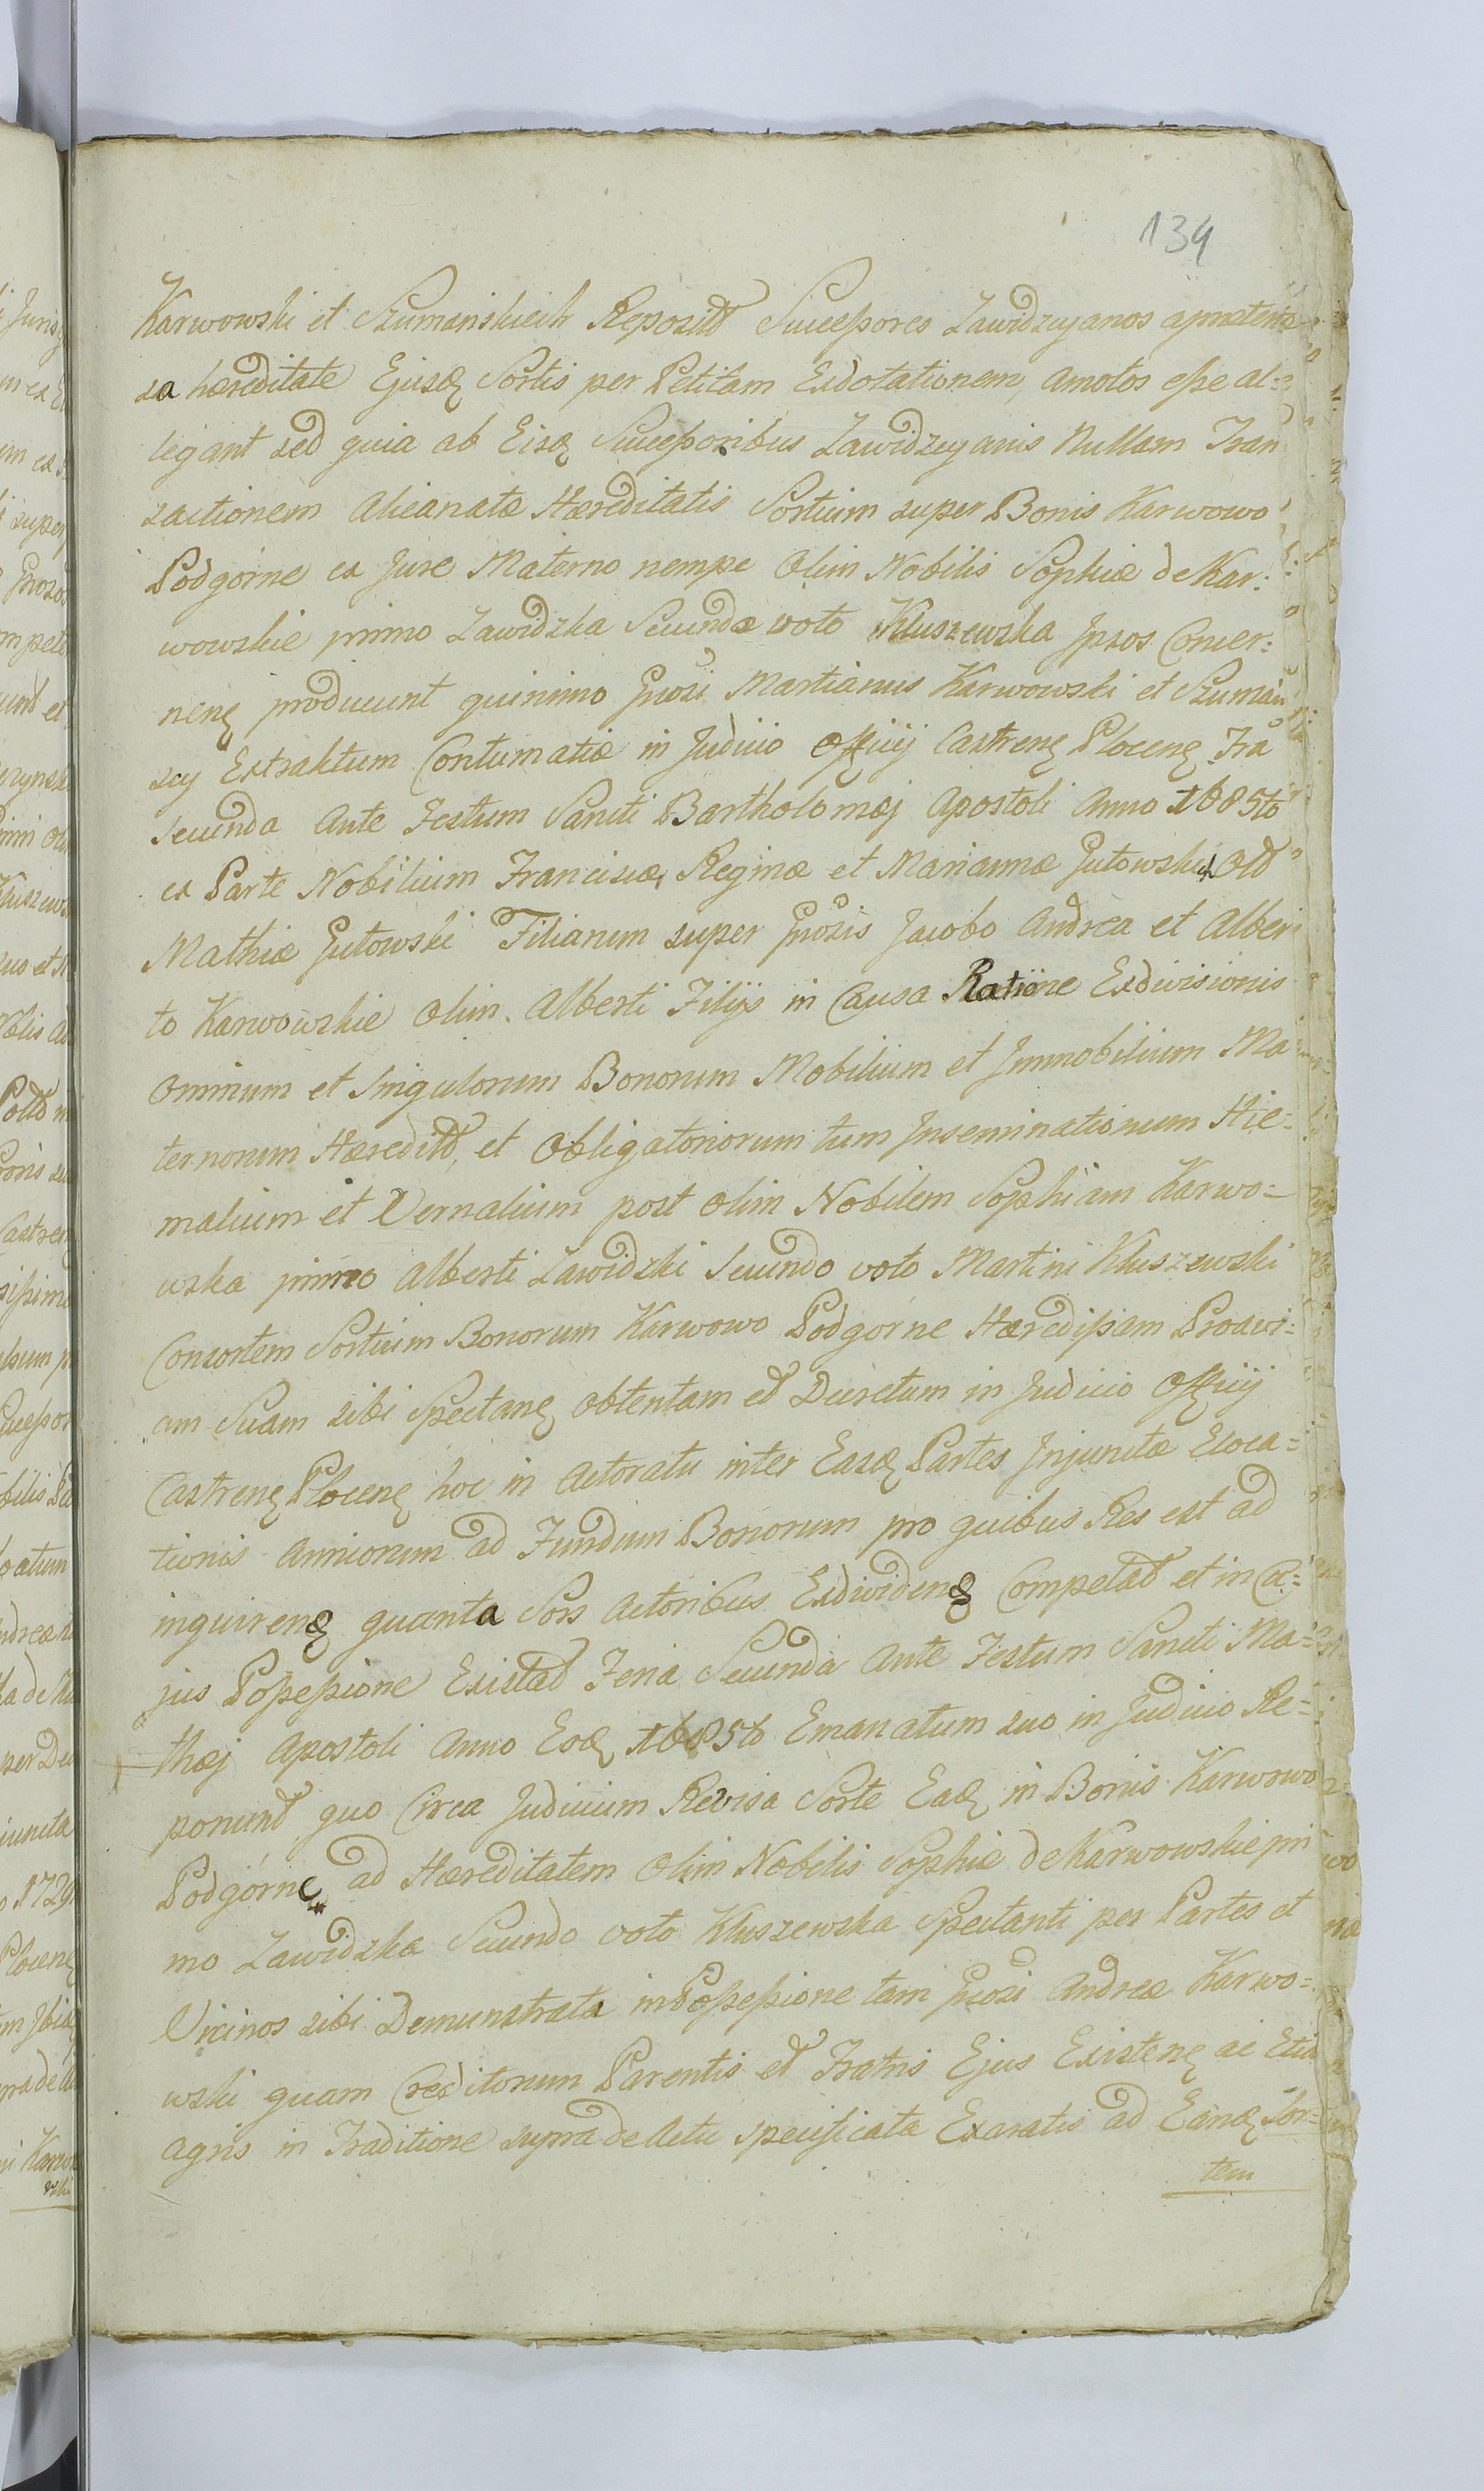 134
Karwowski et Szumanskich Reposit Successores Zawidzcyanos a praetensa
sa haereditate Ejusdę Sortis per Petitam Exdotationem, amotos esse al=
legant sed quia ab Eisdę Successoribus Zawidzcyanis Nullam Tran
zactionem Alieanatae Haereditatis Sortium super Bonis Karwowo
Podgórne ex Jure Materno nempe Olim Nobilis Sophiae de Kar:
wowskie primo Zawidzka Secunda voto Kluszewska Ipsos Concer:
nenę producunt quinimo Gnosi Martianus Karwowski et Szuman
scy Extraktum Contumatiae in Judicio Officij Castrenę Plocenę Fra
Secunda Ante Festum Sancti Bartholomaej Apostoli Anno 1685to
ex Parte Nobilium Franciscae, Reginae et Mariannae Gutowskie Old
Mathiae Gutowski Filiarum super Gnosis Jacobo Andrea et Alber
to Karwowskie olim Alberti Filijs in Causa Ratione Exdivisionis
Omnium et Singulorum Bonorum Mobilium et Immobilium Ma
ternorum Haeredit, et Obligatoriorum tum Inseminationum Hie=
malium et Vernalium post olim Nobilem Sophiam Karwo=
wska primo Alberti Zawidzki Secundo voto Martini Kluszewski
Consortem Sortium Bonorum Karwowo Podgórne Haeredissam Proavi=
am Suam sibi Spectanę obtentam et Decretum in Judicio Officij
Castrenę Plocenę hoc in Actoratu inter Easdę Partes Injunctae Eloca=
tionis Amicorum ad Fundum Bonorum pro quibus Res est ad
inquirenę quanta Sors Actoribus Exdividenę Competat et in Cu=
jus Possessione Existat Feria Secunda Ante Festum Sancti Ma=
thaej Apostoli Anno Eodę 1685to Emanatum suo in Judicio Re=
ponunt quo Circa Judicium Revisa Sorte Eadę in Bonis Karwowo
Podgórne ad Haereditatem Olim Nobilis Sophiae de Karwowskie pri
mo Zawidzka Secundo voto Kluszewska Spectanti per Partes et
Vicinos sibi Demunstrata in Possessione tam Gnosi Andreae Karwo=
wski quam Creditorum Parentis et Fratris Ejus Existenę ac Etia
Agris in Traditione supra de Actu specificata Exaratis ad Eandę Sor=
tem